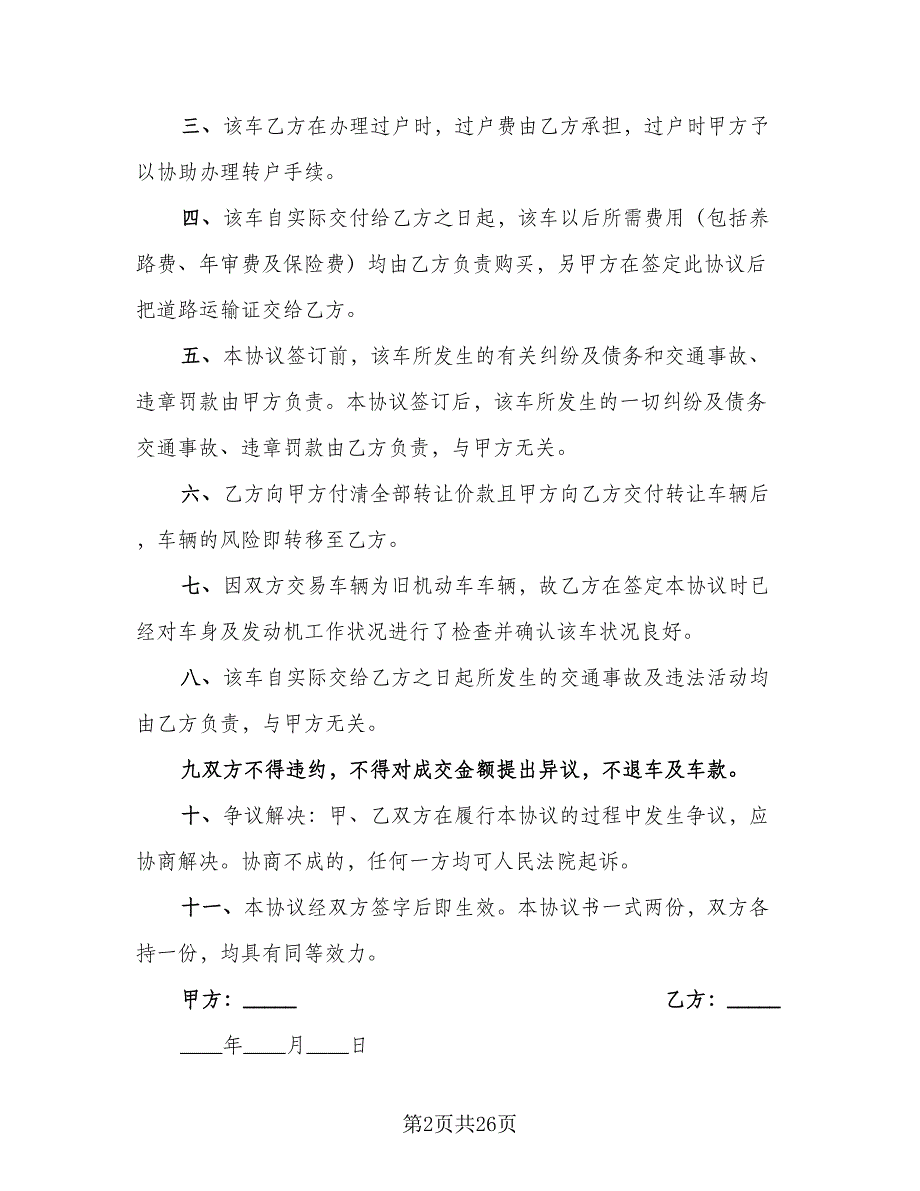 三、该车乙方在办理过户时，过户费由乙方承担，过户时甲方予
以协助办理转户手续。
四、该车自实际交付给乙方之日起，该车以后所需费用（包括养
路费、年审费及保险费）均由乙方负责购买，另甲方在签定此协议后
把道路运输证交给乙方。
五、本协议签订前，该车所发生的有关纠纷及债务和交通事故、
违章罚款由甲方负责。本协议签订后，该车所发生的一切纠纷及债务
交通事故、违章罚款由乙方负责，与甲方无关。
六、乙方向甲方付清全部转让价款且甲方向乙方交付转让车辆后
，车辆的风险即转移至乙方。
七、因双方交易车辆为旧机动车车辆，故乙方在签定本协议时已
经对车身及发动机工作状况进行了检查并确认该车状况良好。
八、该车自实际交给乙方之日起所发生的交通事故及违法活动均
由乙方负责，与甲方无关。
九双方不得违约，不得对成交金额提出异议，不退车及车款。
十、争议解决：甲、乙双方在履行本协议的过程中发生争议，应
协商解决。协商不成的，任何一方均可人民法院起诉。
十一、本协议经双方签字后即生效。本协议书一式两份，双方各
持一份，均具有同等效力。
甲方：_____ 乙方：_____
____年____月____日
第2页共26页